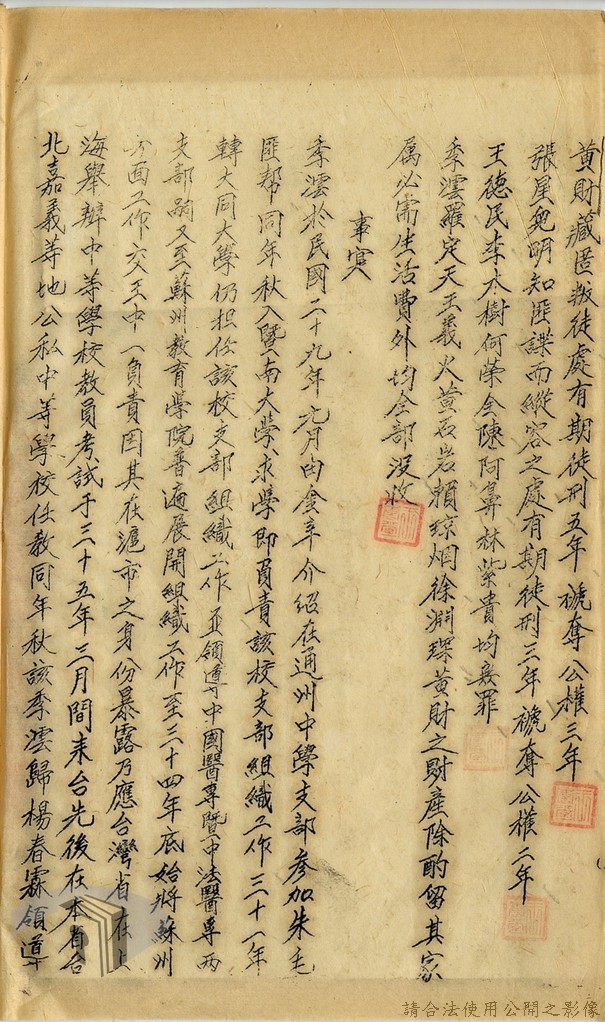 黃財藏匿叛徒處有期徒刑五年褫奪公權三年
張星兒明知匪諜而縱容之處有期徒刑三年褫奪公權二年
王德民李木樹何榮全陳阿鼻林紫貴均無罪
季澐羅定天王義火黃石岩賴琼烟徐淵琛黃財之財產除酌留其家
屬必需生活費外均全部沒收
事實
季澐於民國二十九年九月由金辛介紹在通州中學支部參加朱毛
匪幫同年秋入暨南大學求學即負責該校支部組織工作三十一年
轉大同大學仍担任該校支部組織工作並領導中國醫專暨中法醫專兩
支部嗣又至蘇州教育學院普遍展開組織工作至三十四年底始將蘇州
方面工作交王中一負責因其在滬市之身份暴露乃應台灣省在上
海舉辦中等學校教員考試于三十五年三月間來台先後在本省台
北嘉義等地公私中等學校任教同年秋該季澐歸楊春霖領導
請合法使用公開之影像